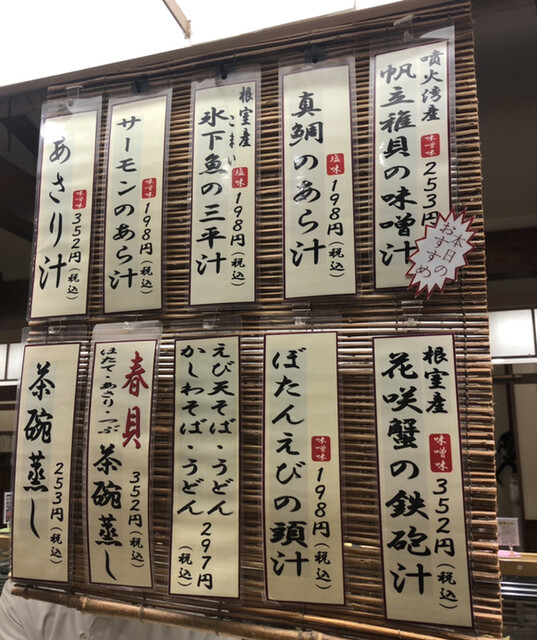 噴火湾産
帆立稚貝の味噌汁
味噌味
253円
本日の
おすすめ
真鯛のあら汁
塩味
198円(税込)
根室産
こまい
氷下魚の三平汁
塩味
198円(税込)
サーモンのあら汁
味噌味
198円(税込)
あさり汁
味噌味
352円(税込)
根室産
花咲蟹の鉄砲汁
味噌味
352円(税込)
ぼたんえびの頭汁
味噌味
198円(税込)
えび天そば・うどん
かしわそば・うどん
297円
(税込)
春貝
ほたて・あさり・つぶ
茶碗蒸し
352円(税込)
茶碗蒸し
253円(税込)